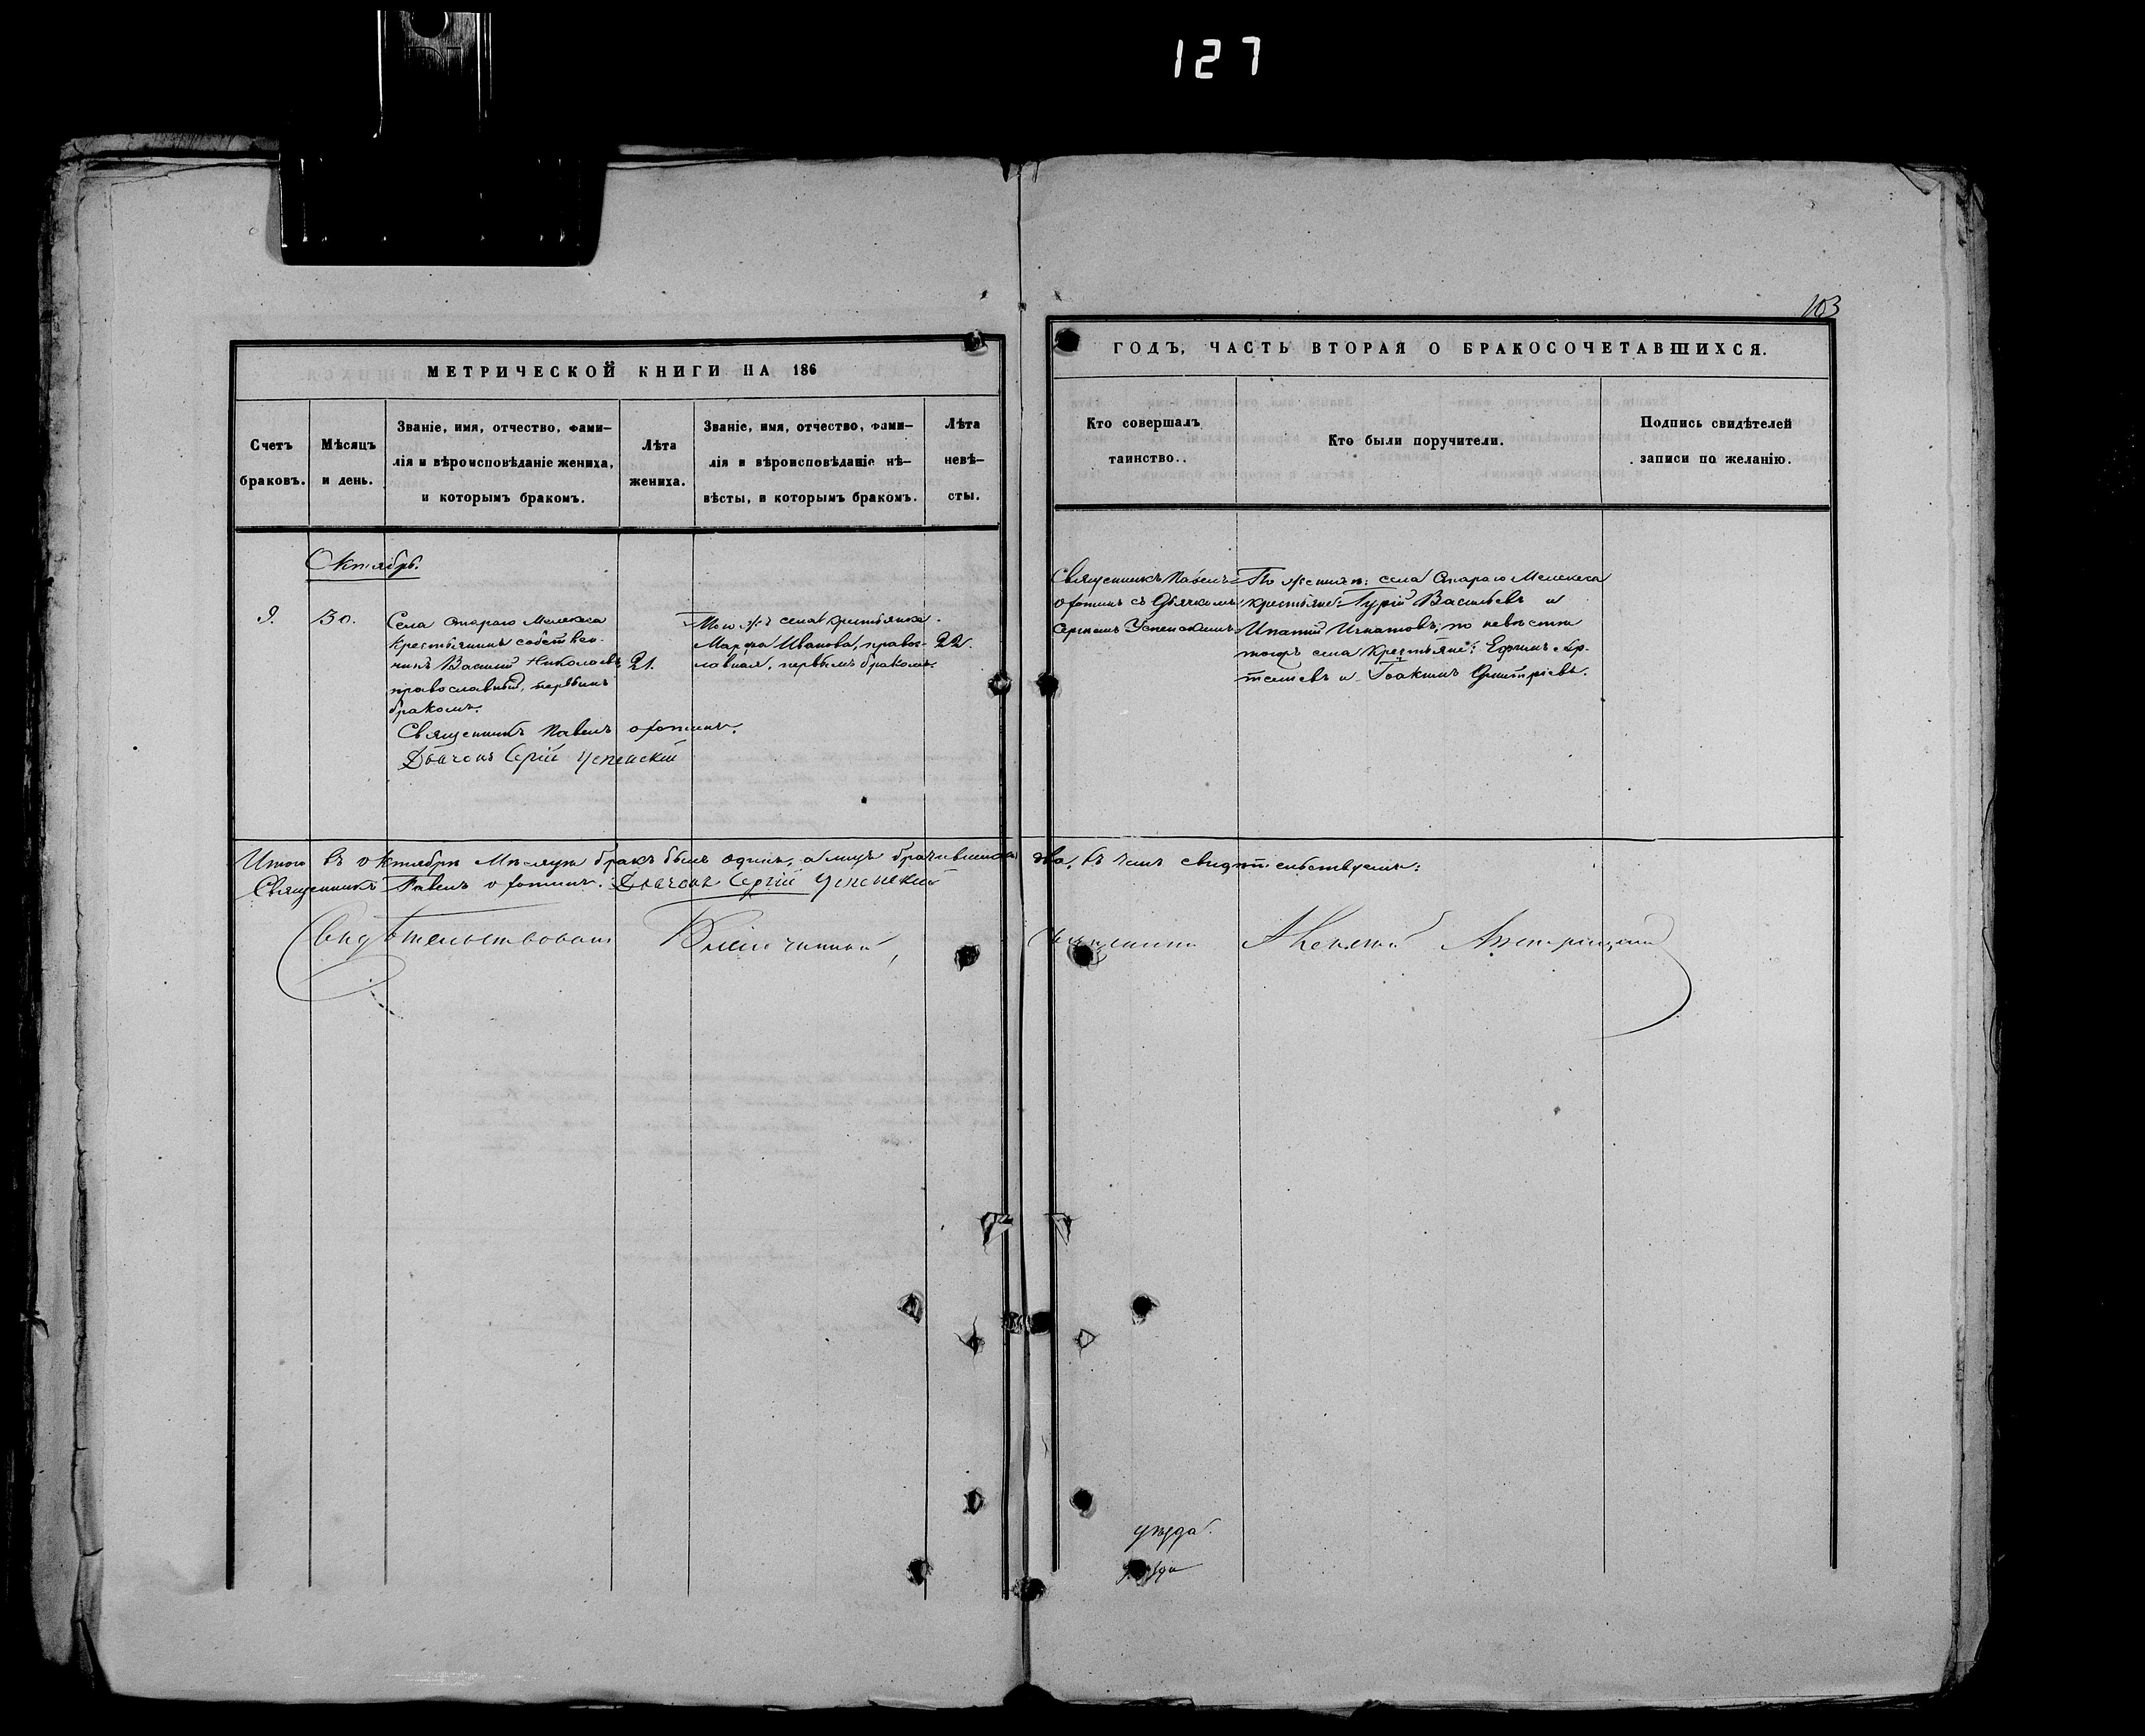 127
103
МЕТРИЧЕСКОЙ КНИГИ НА 186
ГОДЪ, ЧАСТЬ ВТОРАЯ О БРАКОСОЧЕТАВШИХСЯ.
Счетъ
браковъ.
Мѣсяцъ
и день.
Званіе, имя, отчество, фами-
лія и вѣроисповѣданіе жениха,
и которымъ бракомъ.
Лѣта
жениха.
Званіе, имя, отчество, фами-
лія и вѣроисповѣданіе нѣ-
вѣсты, и которымъ бракомъ.
Лѣта
невѣ-
сты.
Кто совершалъ
таинство..
Кто были поручители.
Подпись свидѣтелей
записи по желанію.
Октябрь.
9.
30.
Села Стараго Мелекеса
крестьянинъ собствен-
никъ Василій Николаевъ
православный, первымъ
бракомъ.
21.
Того жъ села крестьянка
Марфа Иванова, правос-
лавная, первымъ бракомъ.
22.
Священникъ Павелъ
Офотинъ съ Дьячкомъ
Сергіемъ Успенскимъ
По женихѣ: села Стараго Мелекеса
крестьяне: Гурій Васильевъ и
Ипатій Игнатовъ; по невѣстѣ
тогожъ села крестьяне: Ефимъ Ар-
темьевъ и Іоакимъ Дмитріевъ.
Священникъ Павелъ Офотинъ.
Дьячекъ Сергій Успенскій
Итого въ Октябрѣ Мѣсяцѣ бракъ былъ одинъ, а лицъ брачившихся два, въ чемъ свидѣтельствуемъ:
Священникъ Павелъ Офотинъ. Дьячекъ Сергій Успенскій
Свидѣтельствовалъ Благочинный,
Священникъ Алексѣй
уѣзда
уѣзда